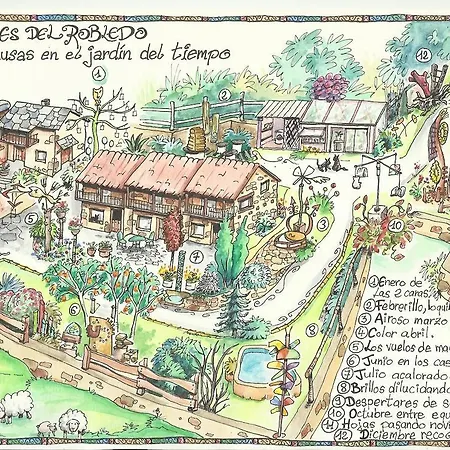 ES DEL ROBLEDO
usas en el jardín del tiempo
1
2
12
5
3
10
7
4
6
8
① Enero de
las 2 caras,
② Febrerillo,
③ Airoso marzo
④ Color abril.
⑤ Los vuelos de ma
⑥ Junio en los cas
⑦ Julio acalorado
⑧ Brillos dilucidando
⑨ Despertares de s
⑩ Octubre entre equ
⑪ Hojas pasando novi
⑫ Diciembre reco